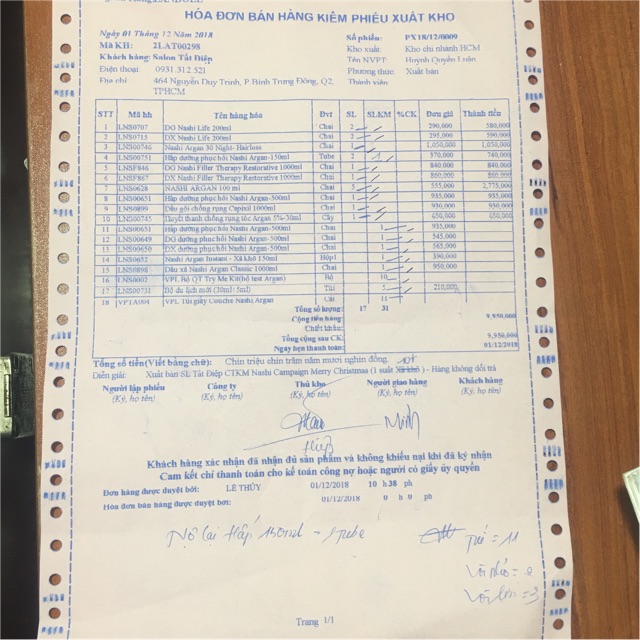 HÓA ĐƠN BÁN HÀNG KIÊM PHIẾU XUẤT KHO
Ngày 01 Tháng 12 Năm 2018 Số phiếu: PX18/12/0009
Mã KH: 2LAT00298 Kho xuất: Kho chi nhánh HCM
Khách hàng: Salon Tất Điệp Tên NVPT: Huỳnh Quyền Luân
Điện thoại 0931 312 521 Phương thức: Xuất bán
Địa chỉ 464 Nguyễn Duy Trinh, P Bình Trưng Đông, Q2, Thành viên:
TPHCM
STT Mã hh Tên hàng hóa Đvt SL SLKM %CK Đơn giá Thành tiền
1 LNS0707 DG Nashi Life 200ml Chai 2 290,000 580,000
2 LNS0715 DX Nashi Life 200ml Chai 2 295,000 590,000
3 LNS00746 Nashi Argan 30 Night- Hairloss Chai 1 1,050,000 1,050,000
4 LNS00751 Hấp dưỡng phục hồi Nashi Argan-150ml Tube 2 1 370,000 740,000
5 LNSF846 DG Nashi Filler Therapy Restorative 1000ml Chai 1 840,000 840,000
6 LNSF867 DX Nashi Filler Therapy Restorative 1000ml Chai 1 860,000 860,000
7 LNS0628 NASHI ARGAN 100 ml Chai 5 555,000 2,775,000
8 LNS00651 Hấp dưỡng phục hồi Nashi Argan-500ml Chai 1 935,000 935,000
9 LNS0899 Dầu gội chống rụng Capixil 1000ml Chai 1 930,000 930,000
10 LNS00745 Huyết thanh chống rụng tóc Argan 5%-30ml Cây 1 650,000 650,000
11 LNS00651 Hấp dưỡng phục hồi Nashi Argan-500ml Chai 1 935,000
12 LNS00649 DG dưỡng phục hồi Nashi Argan-500ml Chai 1 545,000
13 LNS00650 DX dưỡng phục hồi Nashi Argan-500ml Chai 1 565,000
14 LNS0652 Nashi Argan Instant - Xả khô 150ml Hộp1 1 390,000
15 LNS0898 Dầu xả Nashi Argan Classic 1000ml Chai 1 950,000
16 LNS0002 VPL Bộ QT Try Me Kit(bộ test Argan) Bộ 10
17 LNS00731 Bộ du lịch mới (30ml+5ml) Túi 5 210,000
18 VPTA004 VPL Túi giấy Couche Nashi Argan Cái 11
Tổng số lượng: 17 31
Cộng tiền hàng: 9,950,000
Chiết khấu:
Tổng cộng sau CK: 9,950,000
Ngày hẹn thanh toán: 01/12/2018
Tổng số tiền(Viết bằng chữ): Chín triệu chín trăm năm mươi nghìn đồng.
Diễn giải: Xuất bán SL Tất Điệp CTKM Nashi Campaign Merry Christmas (1 suất Xả khô) - Hàng không đổi trả
Người lập phiếu Công ty Thủ kho Người giao hàng Khách hàng
(Ký, họ tên) (Ký, họ tên) (Ký, họ tên) (Ký, họ tên) (Ký, họ tên)
Minh
Hiệp
Khách hàng xác nhận đã nhận đủ sản phẩm và không khiếu nại khi đã ký nhận
Cam kết chỉ thanh toán cho kế toán công nợ hoặc người có giấy ủy quyền
Đơn hàng được duyệt bởi: LÊ THỦY 01/12/2018 10 h 38 ph
Hóa đơn bán hàng được duyệt bởi: 01/12/2018 0 h 0 ph
Nợ lại Hấp 150ml - 1 tube
Túi = 11
Trang 1/1